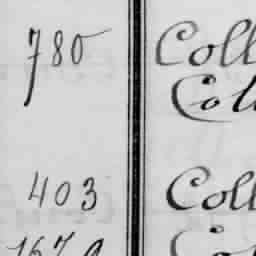 780 Coll
Col
403 Coll